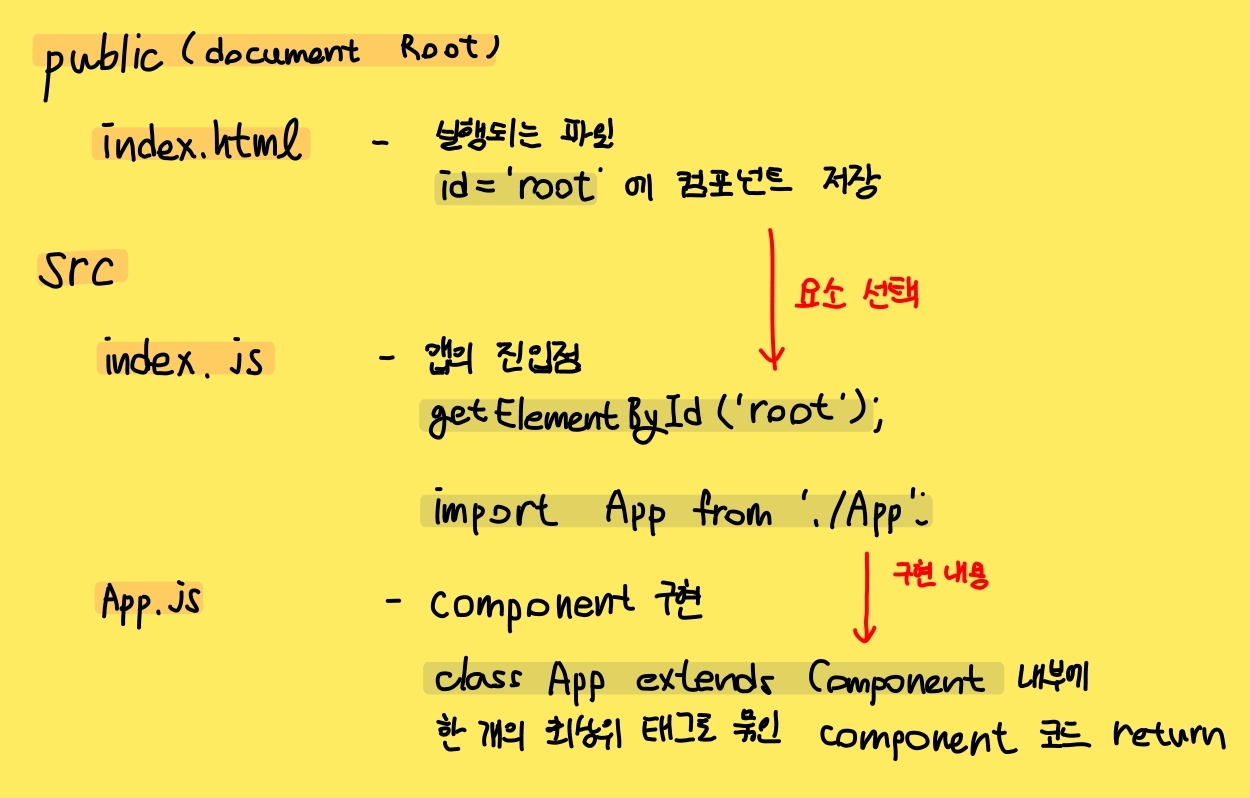 public (document Root)
index.html - 실행되는 파일
id='root' 에 컴포넌트 저장
요소 선택
src
index.js - 앱의 진입점
getElementById('root');
import App from './App';
구현 내용
App.js - component 구현
class App extends Component 내부에
한 개의 최상위 태그로 묶인 component 코드 return